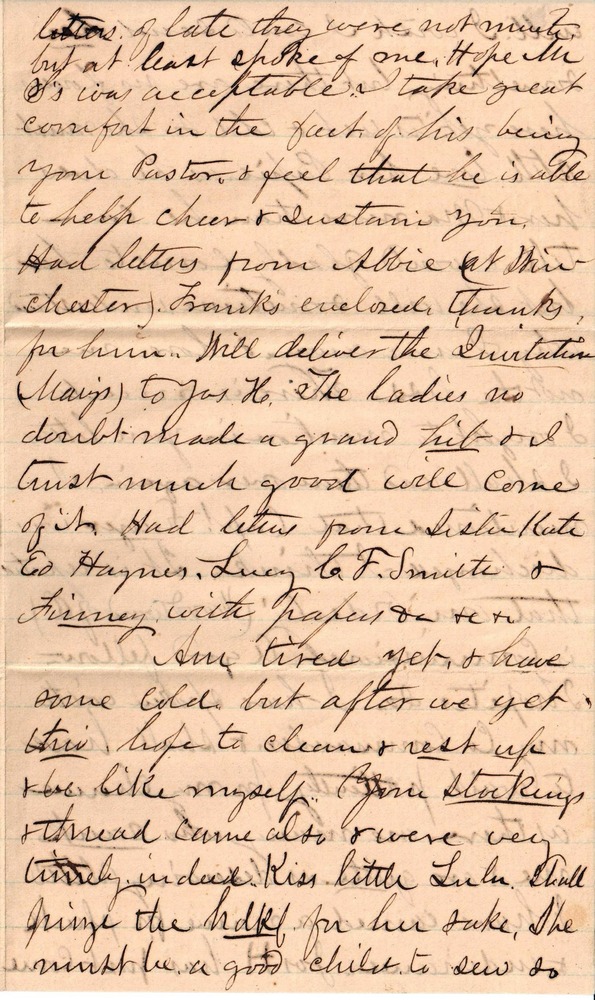 letters of late they were not much
but at least spoke of me. Hope Mr
S's was acceptable. I take great
comfort in the fact of his being
your Pastor. & feel that he is able
to help cheer & sustain you.
Had letters from Abbie (at Win-
chester). Frank's enclosed. thanks,
for him. Will deliver the Invitation
(Maips) to Jos H. The ladies no
doubt made a grand hit & I
trust much good will come
of it. Had letters from Sister Kate
Ed Haynes. Lucy C. F. Smith &
Finney with papers &c &c &c
Am tired yet, & have
some cold. but after we get
thro hope to clean & rest up
& be like myself. Your stockings
& thread came also & were very
timely indeed. Kiss little Lulu. Shall
prize the hdkf for her sake. She
must be a good child to sew so